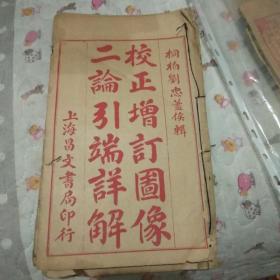 桐柏劉忠藎侯輯
校正增訂圖像
二論引端詳解
上海昌文書局印行